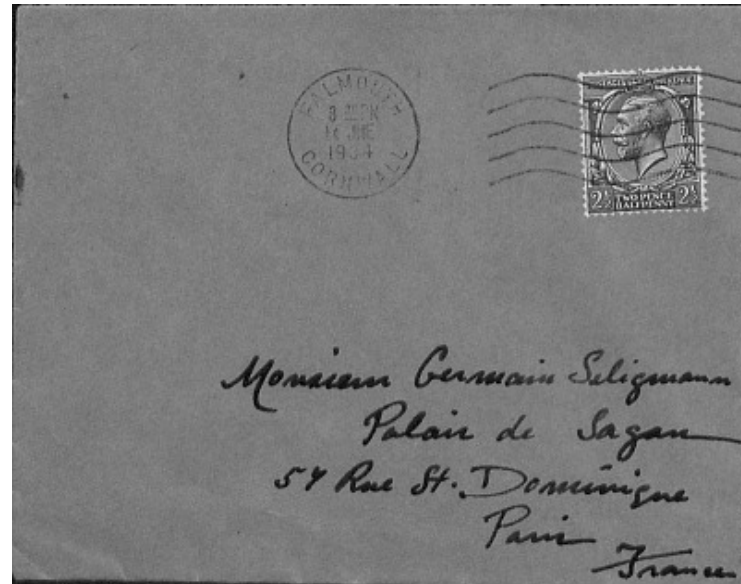 FALMOUTH
1934
CORNWALL
2½ TWO PENCE HALFPENNY 2½
Monsieur Germain Seligmann
Palais de Sagan
57 Rue St. Dominique
Paris
France